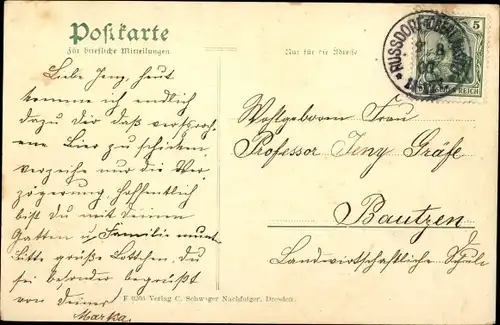 Postkarte
Für briefliche Mitteilungen
Nur für die Adresse
5
RUSSDORF
DEUTSCHES REICH
Liebe Jeny, heut
komme ich endlich
dazu Dir daß versproch-
ene Bier zu schicken,
verzeihe nur die Ver
zögerung, hoffentlich
bist Du mit deinen
Gatten u Familie munter
bitte grüße Lottchen, Du
sei besonder begrüßt
von deiner
Marka.
Wohlgeboren Frau
Professor Jeny Gräfe
Bautzen
Landwirtschaftliche Schule
Verlag C. Schwager Nachfolger, Dresden.